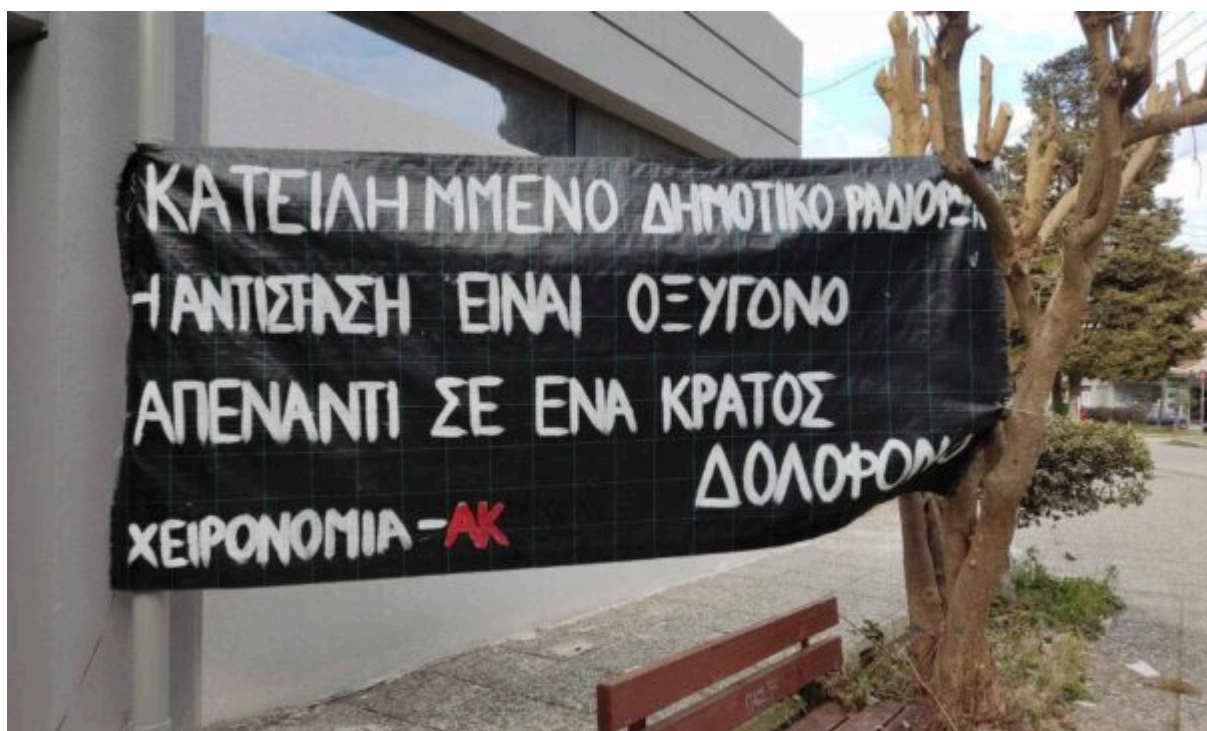 ΚΑΤΕΙΛΗΜΜΕΝΟ ΔΗΜΟΤΙΚΟ
Η ΑΝΤΙΣΤΑΣΗ ΕΙΝΑΙ ΟΞΥΓΟΝΟ
ΑΠΕΝΑΝΤΙ ΣΕ ΕΝΑ ΚΡΑΤΟΣ
ΧΕΙΡΟΝΟΜΙΑ - ΑΚ